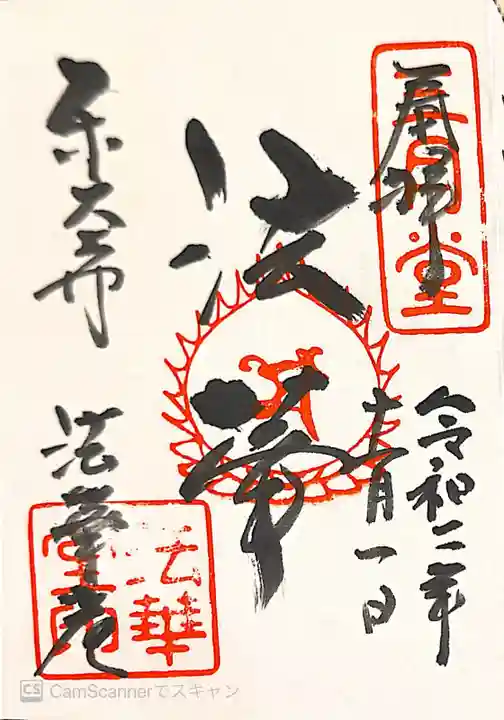 奉拝
三月堂
令和二年
十一月一日
法華
東大寺
法華堂
法華
堂印
CamScannerでスキャン